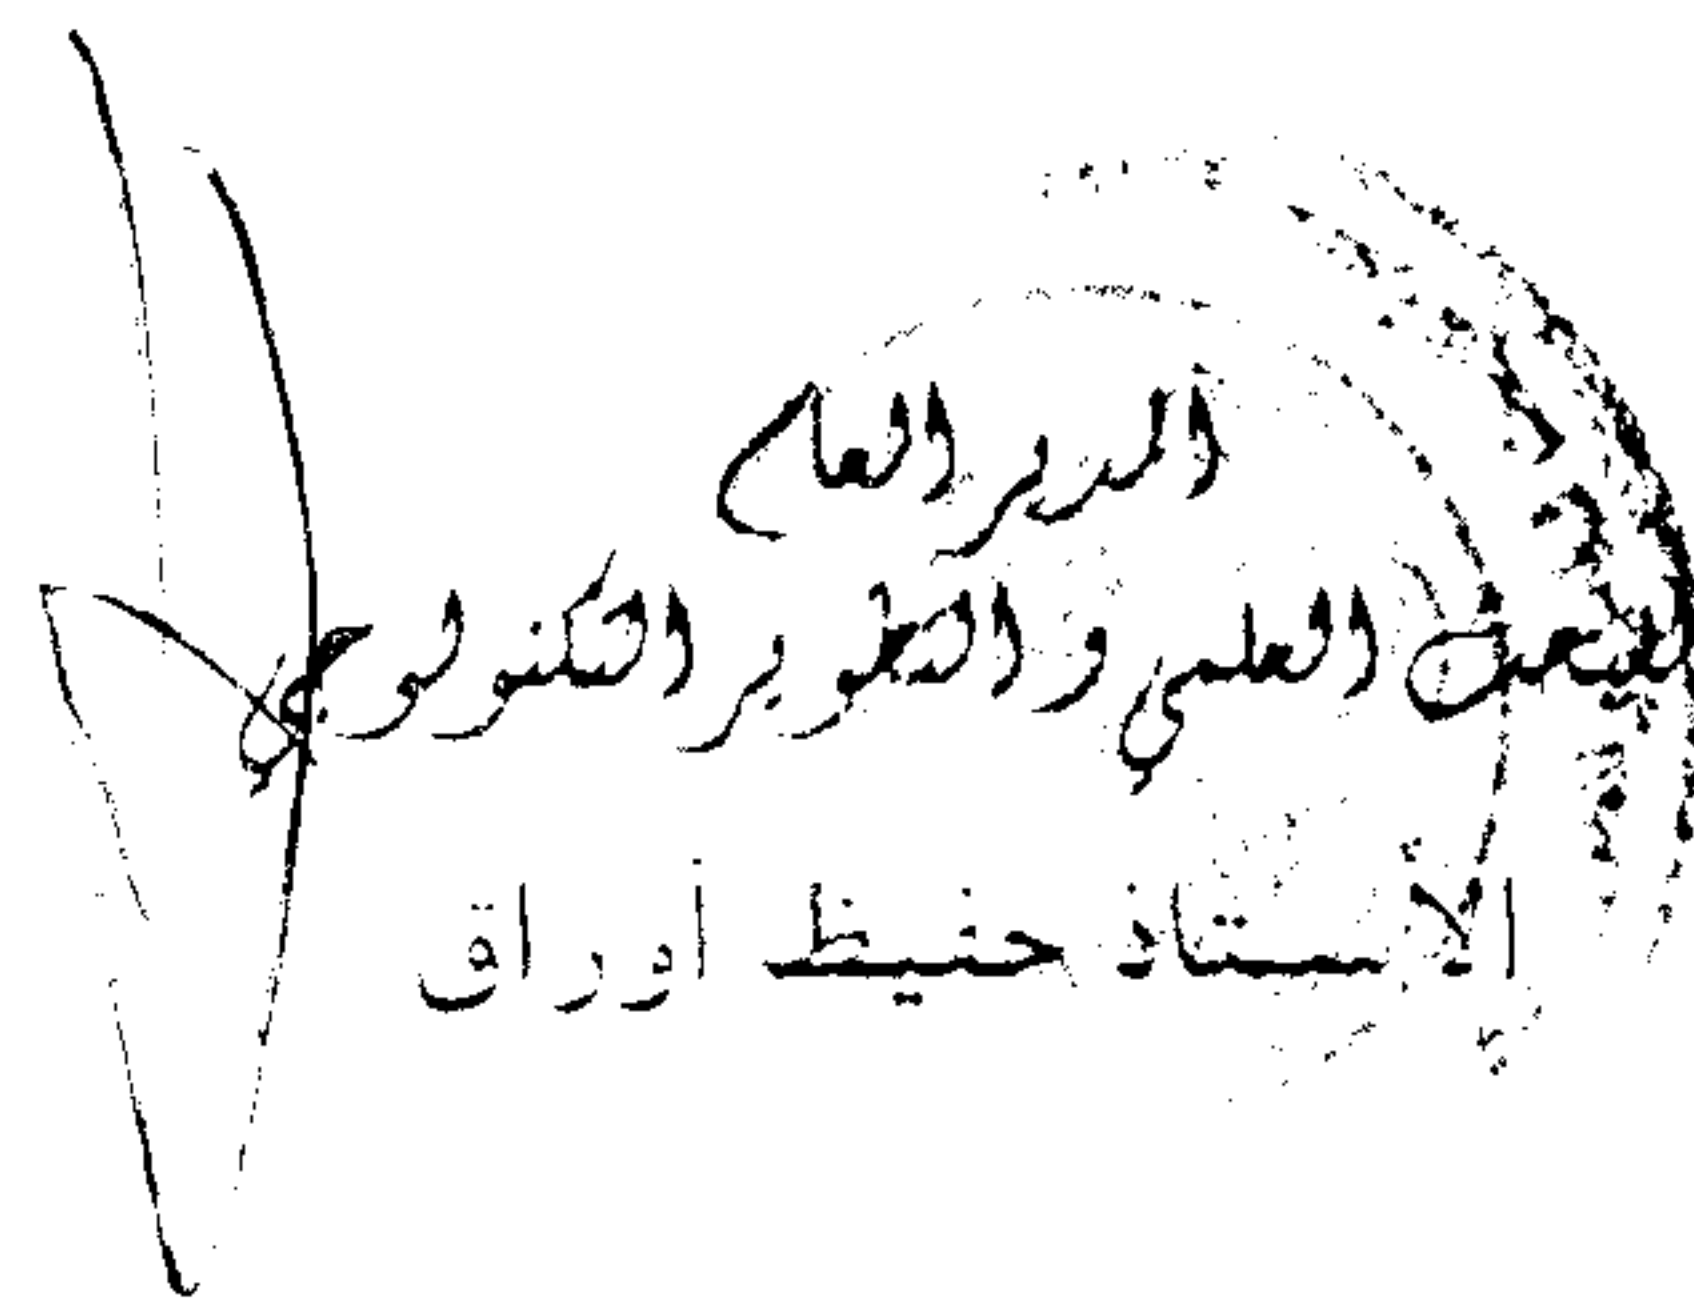 المدير العام
للبحث العلمي و التطوير التكنولوجي
الأستاذ حفيظ أوراق